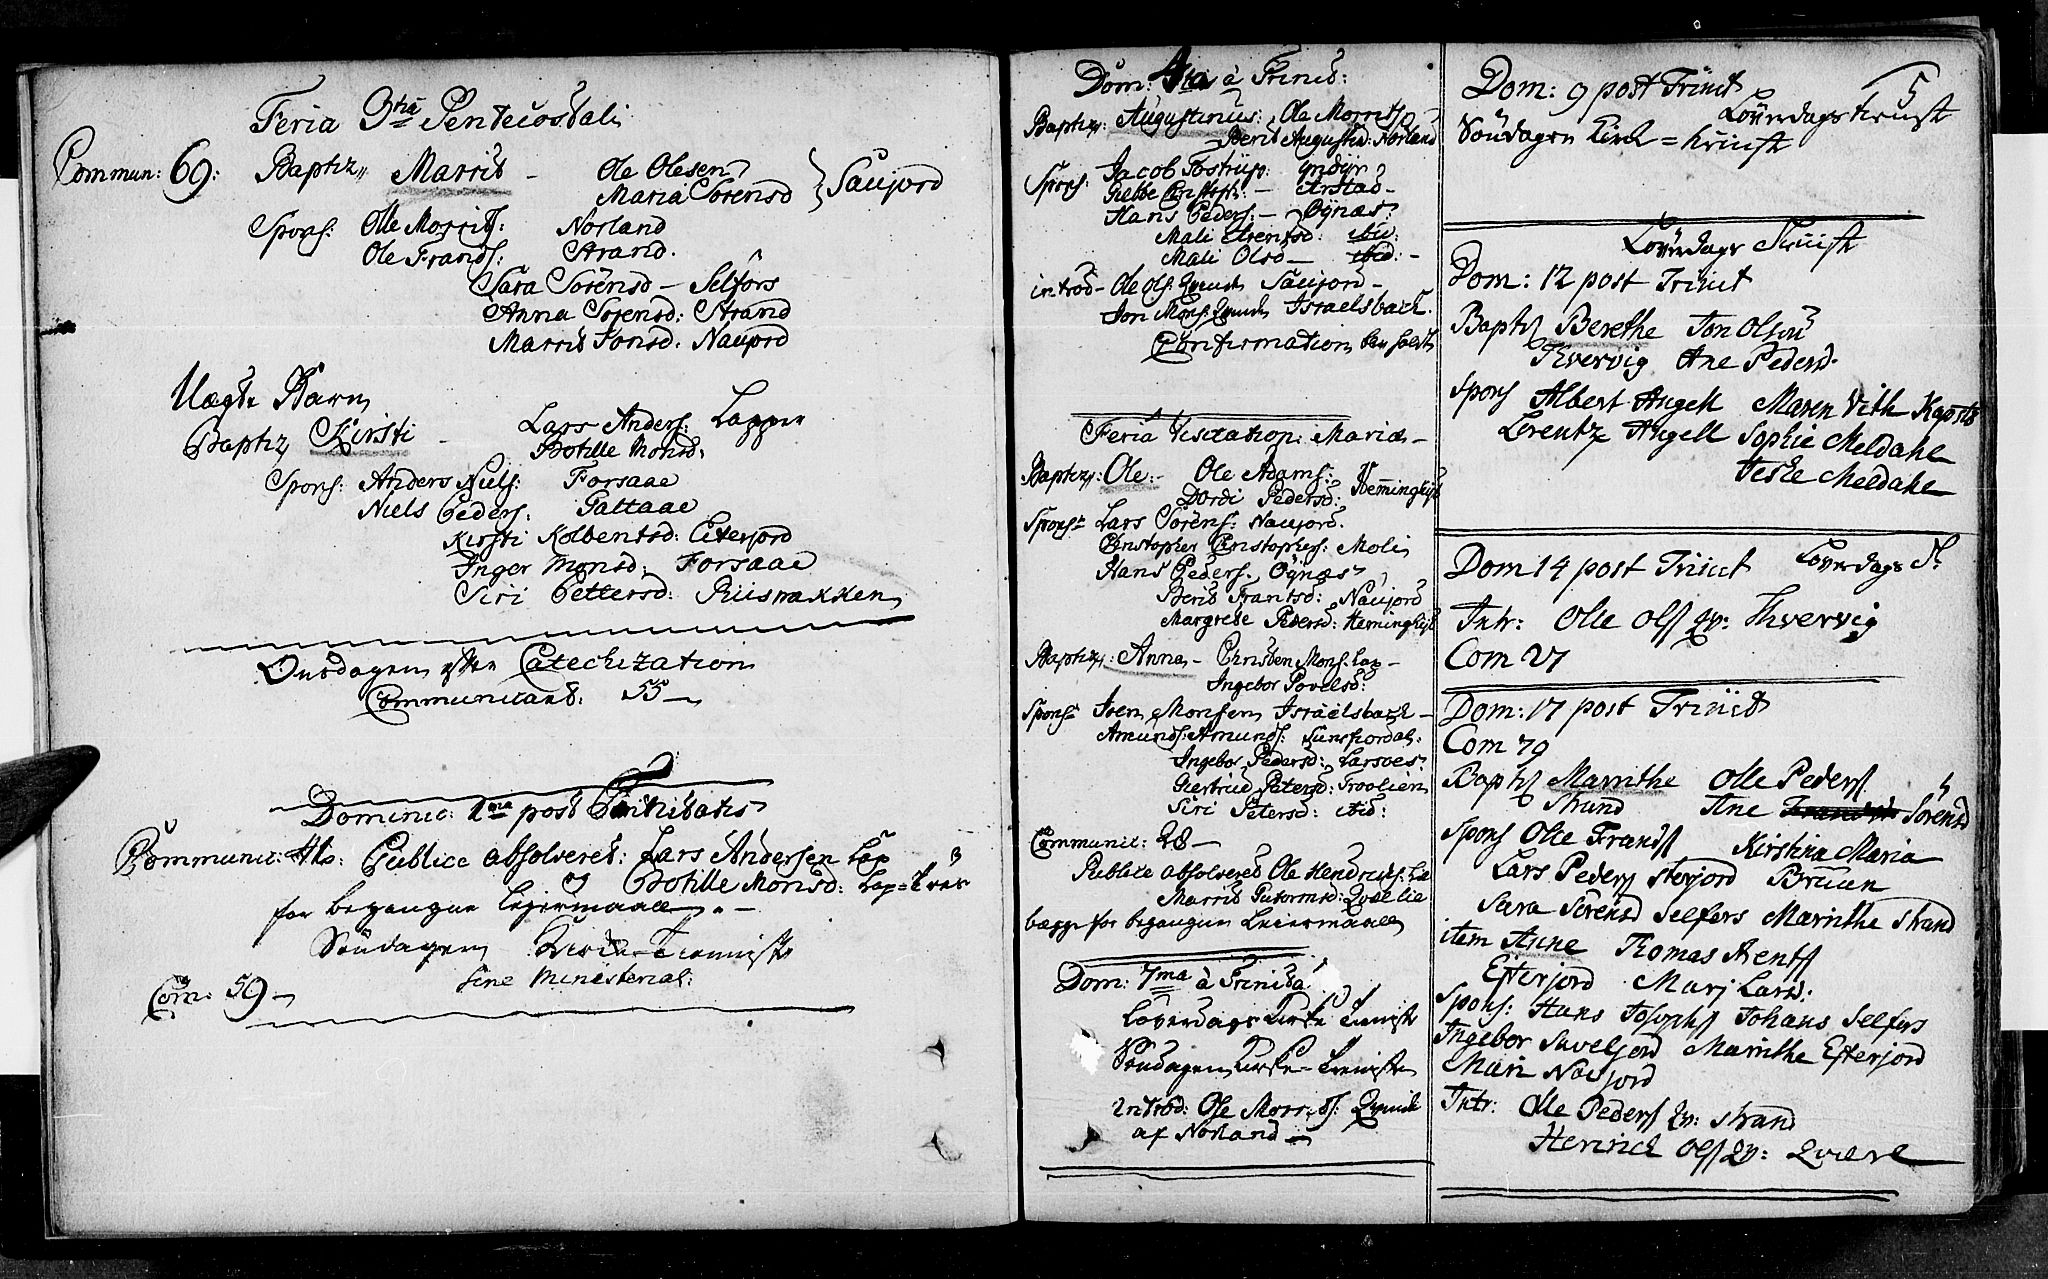 Feria 3tia Pentecostali
Commun: 69: Baptiz: Marrit - Ole Olesen
Maria Sorensd } Saujord
Spons: Olle Morrits: Norland
Ole Frands: Strand.
Sara Sörensd - Selfors
Anna Sorensd: Strand
Marrit Jonsd: Naujord
Uægte Barn
Baptiz Kirsti - Lars Anders: Lapper
Botille Monsd:
Spons: Anders Niels: Forsaae
Niels Peders: Galtaae
Kirsti Kolbentsd: Eiterjord
Inger Monsd: Forsaae
Siri Pettersd: Riisnækken
Onsdagen efter Catechization
Communicant: 55 -
Dominic: 1ma post Trinitatis
Communic: Publice absolveret: Lars Andersen Lap
og Botille Monsd: Lap=
for begangne Leiermaall -
Söndagen Kirke-Tienniste
sine Ministerial:
Com: 59 -
Dom: 4ta à Trinit:
Baptiz: Augustinus: Ole Morrits
Berit Augustid: Norland
Spons: Jacob Tostrup: Yndyr
Giebbe Christoph: - Arstad -
Hans Peders: - Öynæs:
Mali Arentsd: ibid:
Mali Olsd - ibid: -
introd - Ole Ols: Qvinde Saujord -
Jon Mons: Qvinde Israelsback.
Confirmation
Feria Visitation: Mariæ -
Baptiz: Ole: - Ole Adams:
Dordi Pedersd: Hemminghyt
Spons: Lars Sörens: Naujord.
Christopher Christophers: Moli
Hans Peders. Öynæs
Berit Frantsd: Naujord
Margrete Pedersd: Heminghyt
Baptiz: Anna - Christen Mons: Lap -
Ingebor Povelsd:
Spons: Iven Monsen Israelsback -
Amunds: Amunds: Sunfiordal:
Ingebor Pedersd: Larsves:
Giertrud Petersd: Troolien
Siri Petersd: ibid:
Communic: 28 -
Publice absolveret Ole Hendricks:
Marrit Gutormsd:
begge for begangen Leiermaall
Dom: 7ma à Trinita
Löverdags Kirke Tienniste
Söndagen Kirke-Tienniste
Introd: Ole Morrits: Qvinde
af Norland -
5
Dom: 9 post Trinit
Löverdags tienist
Söndagen Kirck = tienist
Löverdags Tienist
Dom: 12 post Trinit
Baptz Berethe Jon Olsön
Thvervig Ane Pedersd.
Spons Albert Angell Maren With
Lorentz Angell Sophie Meldahl
Teske Meldahl
Dom 14 post Trinit Löverdags T.
Intr: Olle Ols Qv: Thvervig
Com 27
Dom: 17 post Trinit
Com 79
Baptz Marithe Olle Peders
Strand Ane Sörensd
Spons Olle Frands Kirstina Maria
Lars Peders Storjord Bruun
Sara Sörensd Selfers Marithe Strand
item Anne Thomas Arents
Efterjord Mari Larsd:
Spons: Hans Josephs Johans Selfers
Ingebor Saveljord Marithe Efterjord
Mari Naujord
Intr: Olle Peders Qv: Strand
Henrick Ols Qv: Qvæle